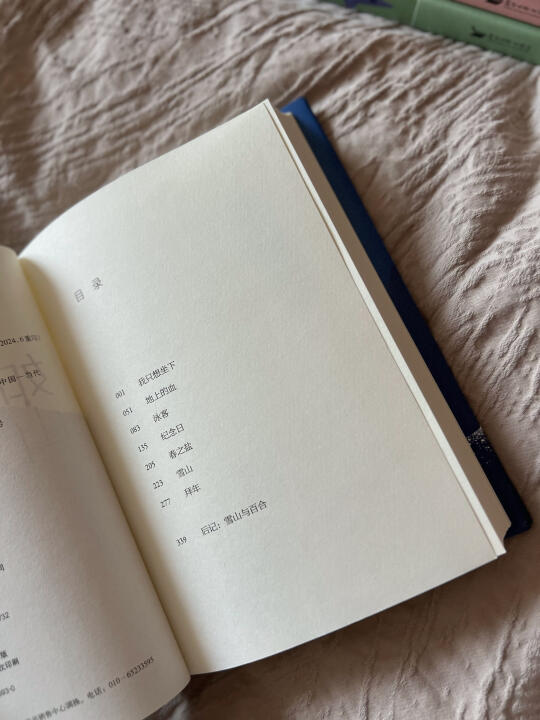 2024.6重印
中国—当代
号
732
版
次印刷
393-0
销售中心调换。电话：010-65233595
目录
001 我只想坐下
051 地上的血
083 泳客
135 纪念日
205 春之盐
223 雪山
277 拜年
339 后记：雪山与百合